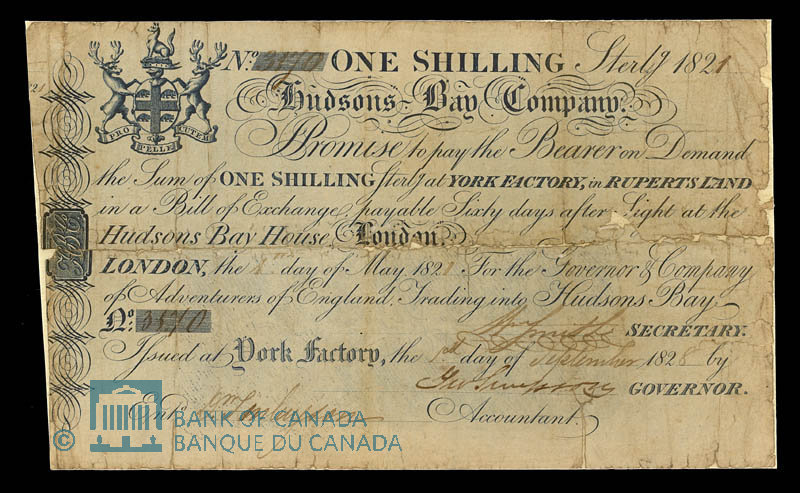 No. 3570 ONE SHILLING Sterlg 1821
Hudsons Bay Company.
PRO PELLE CUTEM
Promise to pay the Bearer on Demand
the Sum of ONE SHILLING Sterlg at YORK FACTORY, in RUPERTS LAND
in a Bill of Exchange, payable Sixty days after Sight at the
HBC
Hudsons Bay House, London.
LONDON, the day of May 1821 For the Governor & Company
of Adventurers of England, Trading into Hudsons Bay.
No. 3570
Smith SECRETARY.
Issued at York Factory, the 1st day of September 1828 by
Geo Simpson GOVERNOR.
Entd. Accountant.
© BANK OF CANADA
BANQUE DU CANADA